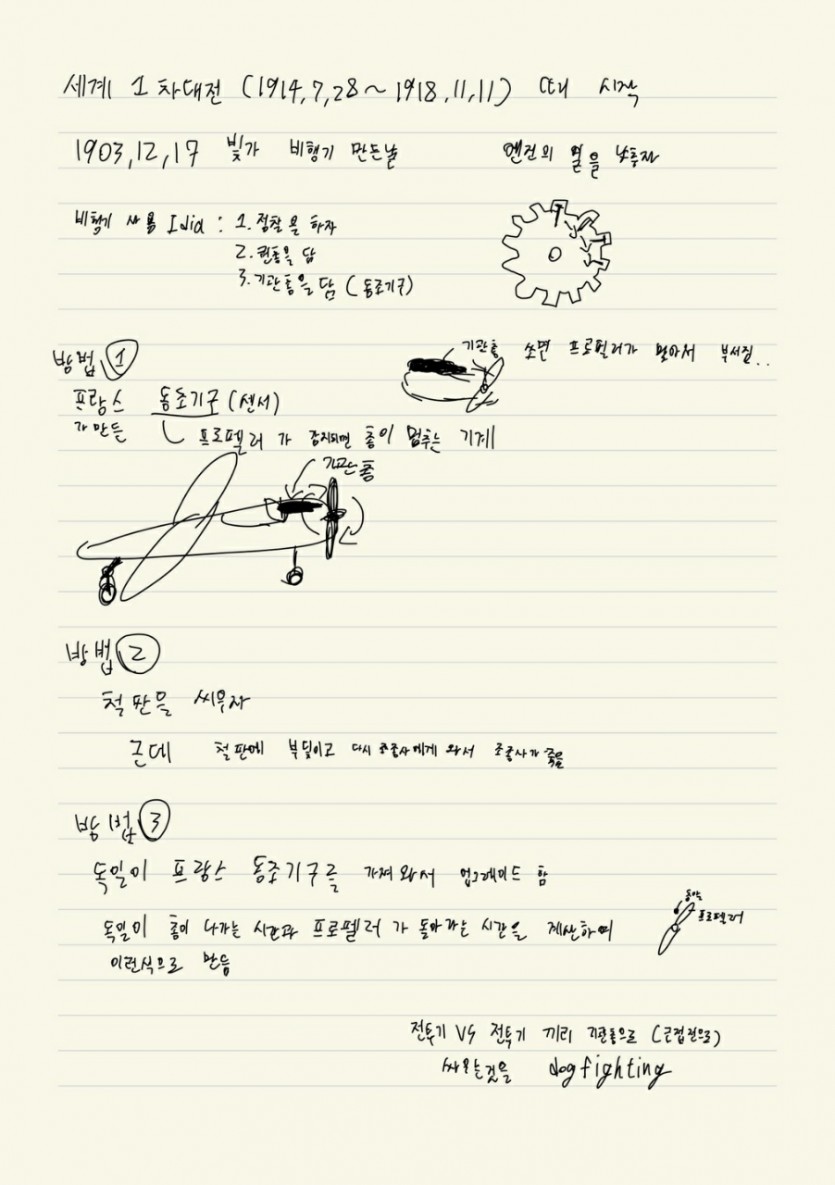 세계 1차대전 (1914,7,28 ~ 1918,11,11) 때 시작
1903,12,17 빛가 비행기 만든날
엔진의 열을 낮추자
비행기 사용 Idia : 1. 정찰을 하자
2. 권총을 담
3. 기관총을 담 (동조기구)
방법 1
기관총 쏘면 프로펠러가 맞아서 부서짐..
프랑스 동조기구 (센서)
가 만든
프로펠러가 감지되면 총이 멈추는 기계
기관총
방법 2
철판을 씌우자
근데 철판에 부딪이고 다시 조종사에게 와서 조종사가 죽음
방법 3
독일이 프랑스 동조기구를 가져와서 업그레이드 함
총알
프로펠러
독일이 총이 나가는 시간과 프로펠러가 돌아가는 시간을 계산하여
이런식으로 만듬
전투기 VS 전투기 끼리 기관총으로 (근접전으로)
싸우는것을 dogfighting